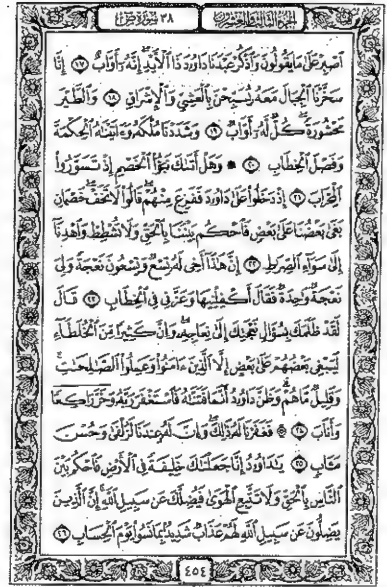 الجزء الثالث والعشرون ٣٨ سورة ص
ٱصۡبِرۡ عَلَىٰ مَا يَقُولُونَ وَٱذۡكُرۡ عَبۡدَنَا دَاوُۥدَ ذَا ٱلۡأَيۡدِۖ إِنَّهُۥٓ أَوَّابٌ ١٧ إِنَّا
سَخَّرۡنَا ٱلۡجِبَالَ مَعَهُۥ يُسَبِّحۡنَ بِٱلۡعَشِيِّ وَٱلۡإِشۡرَاقِ ١٨ وَٱلطَّيۡرَ
مَحۡشُورَةٗۖ كُلّٞ لَّهُۥٓ أَوَّابٞ ١٩ وَشَدَدۡنَا مُلۡكَهُۥ وَءَاتَيۡنَٰهُ ٱلۡحِكۡمَةَ
وَفَصۡلَ ٱلۡخِطَابِ ٢٠ ۞ وَهَلۡ أَتَىٰكَ نَبَؤُاْ ٱلۡخَصۡمِ إِذۡ تَسَوَّرُواْ
ٱلۡمِحۡرَابَ ٢١ إِذۡ دَخَلُواْ عَلَىٰ دَاوُۥدَ فَفَزِعَ مِنۡهُمۡۖ قَالُواْ لَا تَخَفۡۖ خَصۡمَانِ
بَغَىٰ بَعۡضُنَا عَلَىٰ بَعۡضٖ فَٱحۡكُم بَيۡنَنَا بِٱلۡحَقِّ وَلَا تُشۡطِطۡ وَٱهۡدِنَآ
إِلَىٰ سَوَآءِ ٱلصِّرَٰطِ ٢٢ إِنَّ هَٰذَآ أَخِي لَهُۥ تِسۡعٞ وَتِسۡعُونَ نَعۡجَةٗ وَلِيَ
نَعۡجَةٞ وَٰحِدَةٞ فَقَالَ أَكۡفِلۡنِيهَا وَعَزَّنِي فِي ٱلۡخِطَابِ ٢٣ قَالَ
لَقَدۡ ظَلَمَكَ بِسُؤَالِ نَعۡجَتِكَ إِلَىٰ نِعَاجِهِۦۖ وَإِنَّ كَثِيرٗا مِّنَ ٱلۡخُلَطَآءِ
لَيَبۡغِي بَعۡضُهُمۡ عَلَىٰ بَعۡضٍ إِلَّا ٱلَّذِينَ ءَامَنُواْ وَعَمِلُواْ ٱلصَّٰلِحَٰتِ
وَقَلِيلٞ مَّا هُمۡۗ وَظَنَّ دَاوُۥدُ أَنَّمَا فَتَنَّٰهُ فَٱسۡتَغۡفَرَ رَبَّهُۥ وَخَرَّۤ رَاكِعٗاۤ
وَأَنَابَ ۩ ٢٤ فَغَفَرۡنَا لَهُۥ ذَٰلِكَۖ وَإِنَّ لَهُۥ عِندَنَا لَزُلۡفَىٰ وَحُسۡنَ
مَـَٔابٖ ٢٥ يَٰدَاوُۥدُ إِنَّا جَعَلۡنَٰكَ خَلِيفَةٗ فِي ٱلۡأَرۡضِ فَٱحۡكُم بَيۡنَ
ٱلنَّاسِ بِٱلۡحَقِّ وَلَا تَتَّبِعِ ٱلۡهَوَىٰ فَيُضِلَّكَ عَن سَبِيلِ ٱللَّهِۚ إِنَّ ٱلَّذِينَ
يَضِلُّونَ عَن سَبِيلِ ٱللَّهِ لَهُمۡ عَذَابٞ شَدِيدُۢ بِمَا نَسُواْ يَوۡمَ ٱلۡحِسَابِ ٢٦
٤٥٤